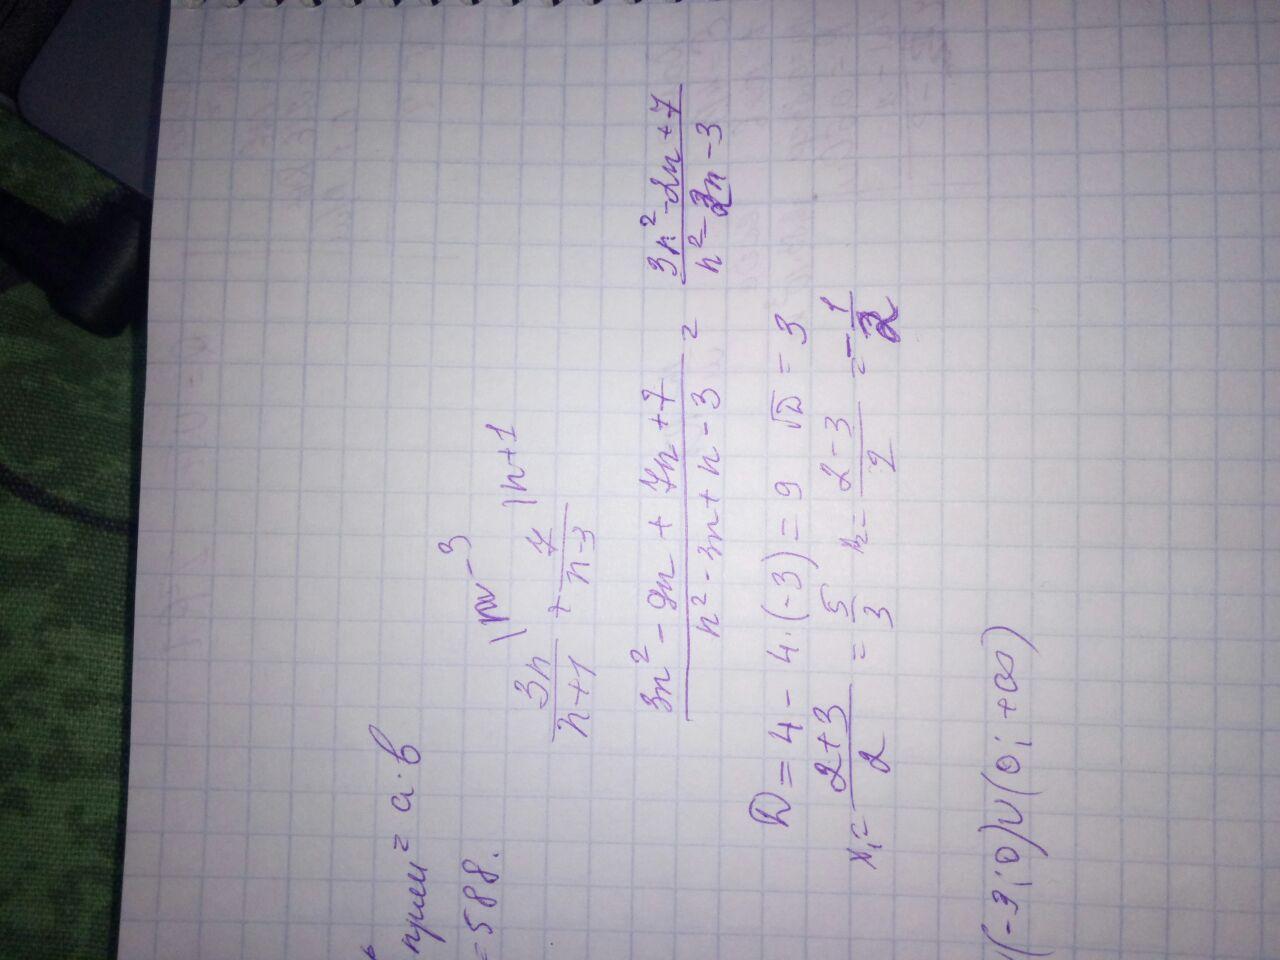 прям = a · b
= 588.
|n - 3 |n+1
3n/n+1 + 7/n-3
3n² - 9n + 7n + 7/n² - 3n + n - 3 = 3n² - 2n + 7/n² - 2n - 3
D = 4 - 4 · (-3) = 9 √D = 3
x₁ = 2+3/2 = 5/3 x₂ = 2-3/2 = -1/2
(-3; 0) ∪ (0; +∞)